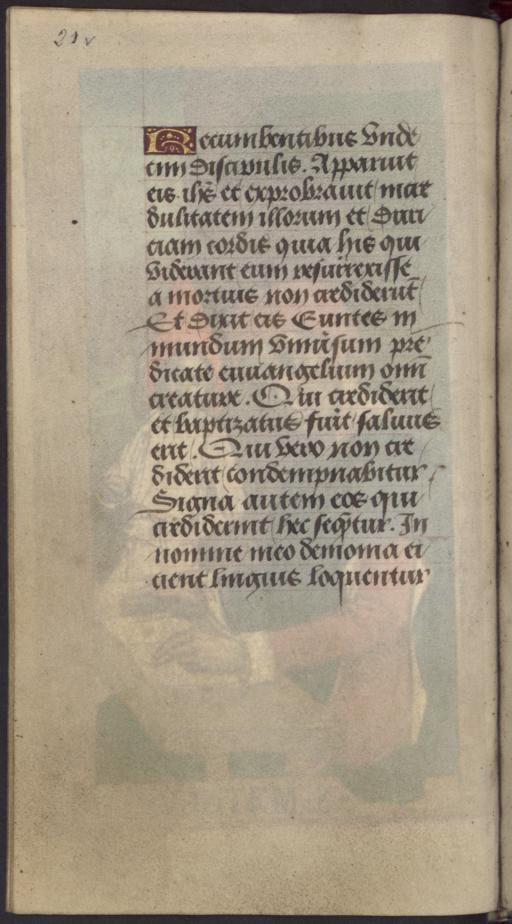 21v
Recumbentibus vnde
cim discipulis. Apparuit
eis ihs̄ et exprobrauit incre
dulitatem illorum et duri
ciam cordis quia his qui
viderant eum resurrexisse
a mortuis non crediderūt
Et dixit eis Euntes in
mundum vniūsum pre
dicate euuangelium omī
creature. Qui crediderit
et baptizatus fuīt saluus
erit. Qui vero non cre
diderit condempnabitur
Signa autem eos qui
crediderint hec seq̄ntur. In
nomine meo demonia ei
cient linguis loquentur